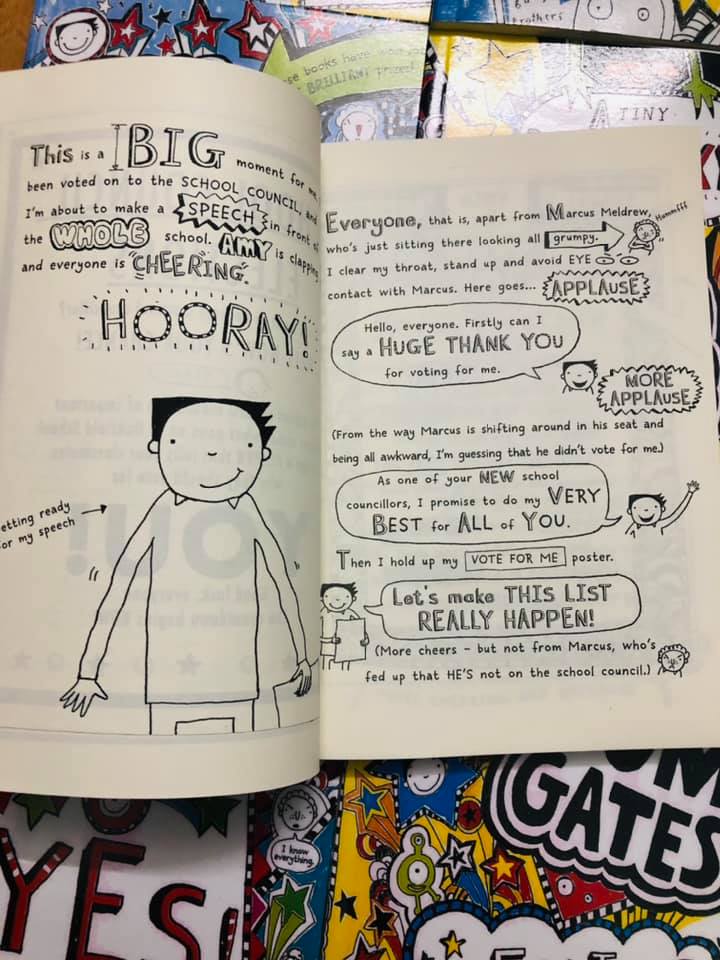 brothers
se books have won
BRILLIANT prizes!
A TINY
This is a BIG moment for me.
been voted on to the SCHOOL COUNCIL, and
I'm about to make a SPEECH in front of
the WHOLE school. AMY is clapping
and everyone is CHEERING.
HOORAY!
etting ready
or my speech
Everyone, that is, apart from Marcus Meldrew,
Hummfff
who's just sitting there looking all grumpy.
I clear my throat, stand up and avoid EYE
contact with Marcus. Here goes... APPLAUSE
Hello, everyone. Firstly can I
say a HUGE THANK YOU
for voting for me.
MORE
APPLAUSE
(From the way Marcus is shifting around in his seat and
being all awkward, I'm guessing that he didn't vote for me.)
As one of your NEW school
councillors, I promise to do my VERY
BEST for ALL of YOU.
Then I hold up my VOTE FOR ME poster.
Let's make THIS LIST
REALLY HAPPEN!
(More cheers - but not from Marcus, who's
fed up that HE'S not on the school council.)
YES!
I know
everything.
OM
GATES